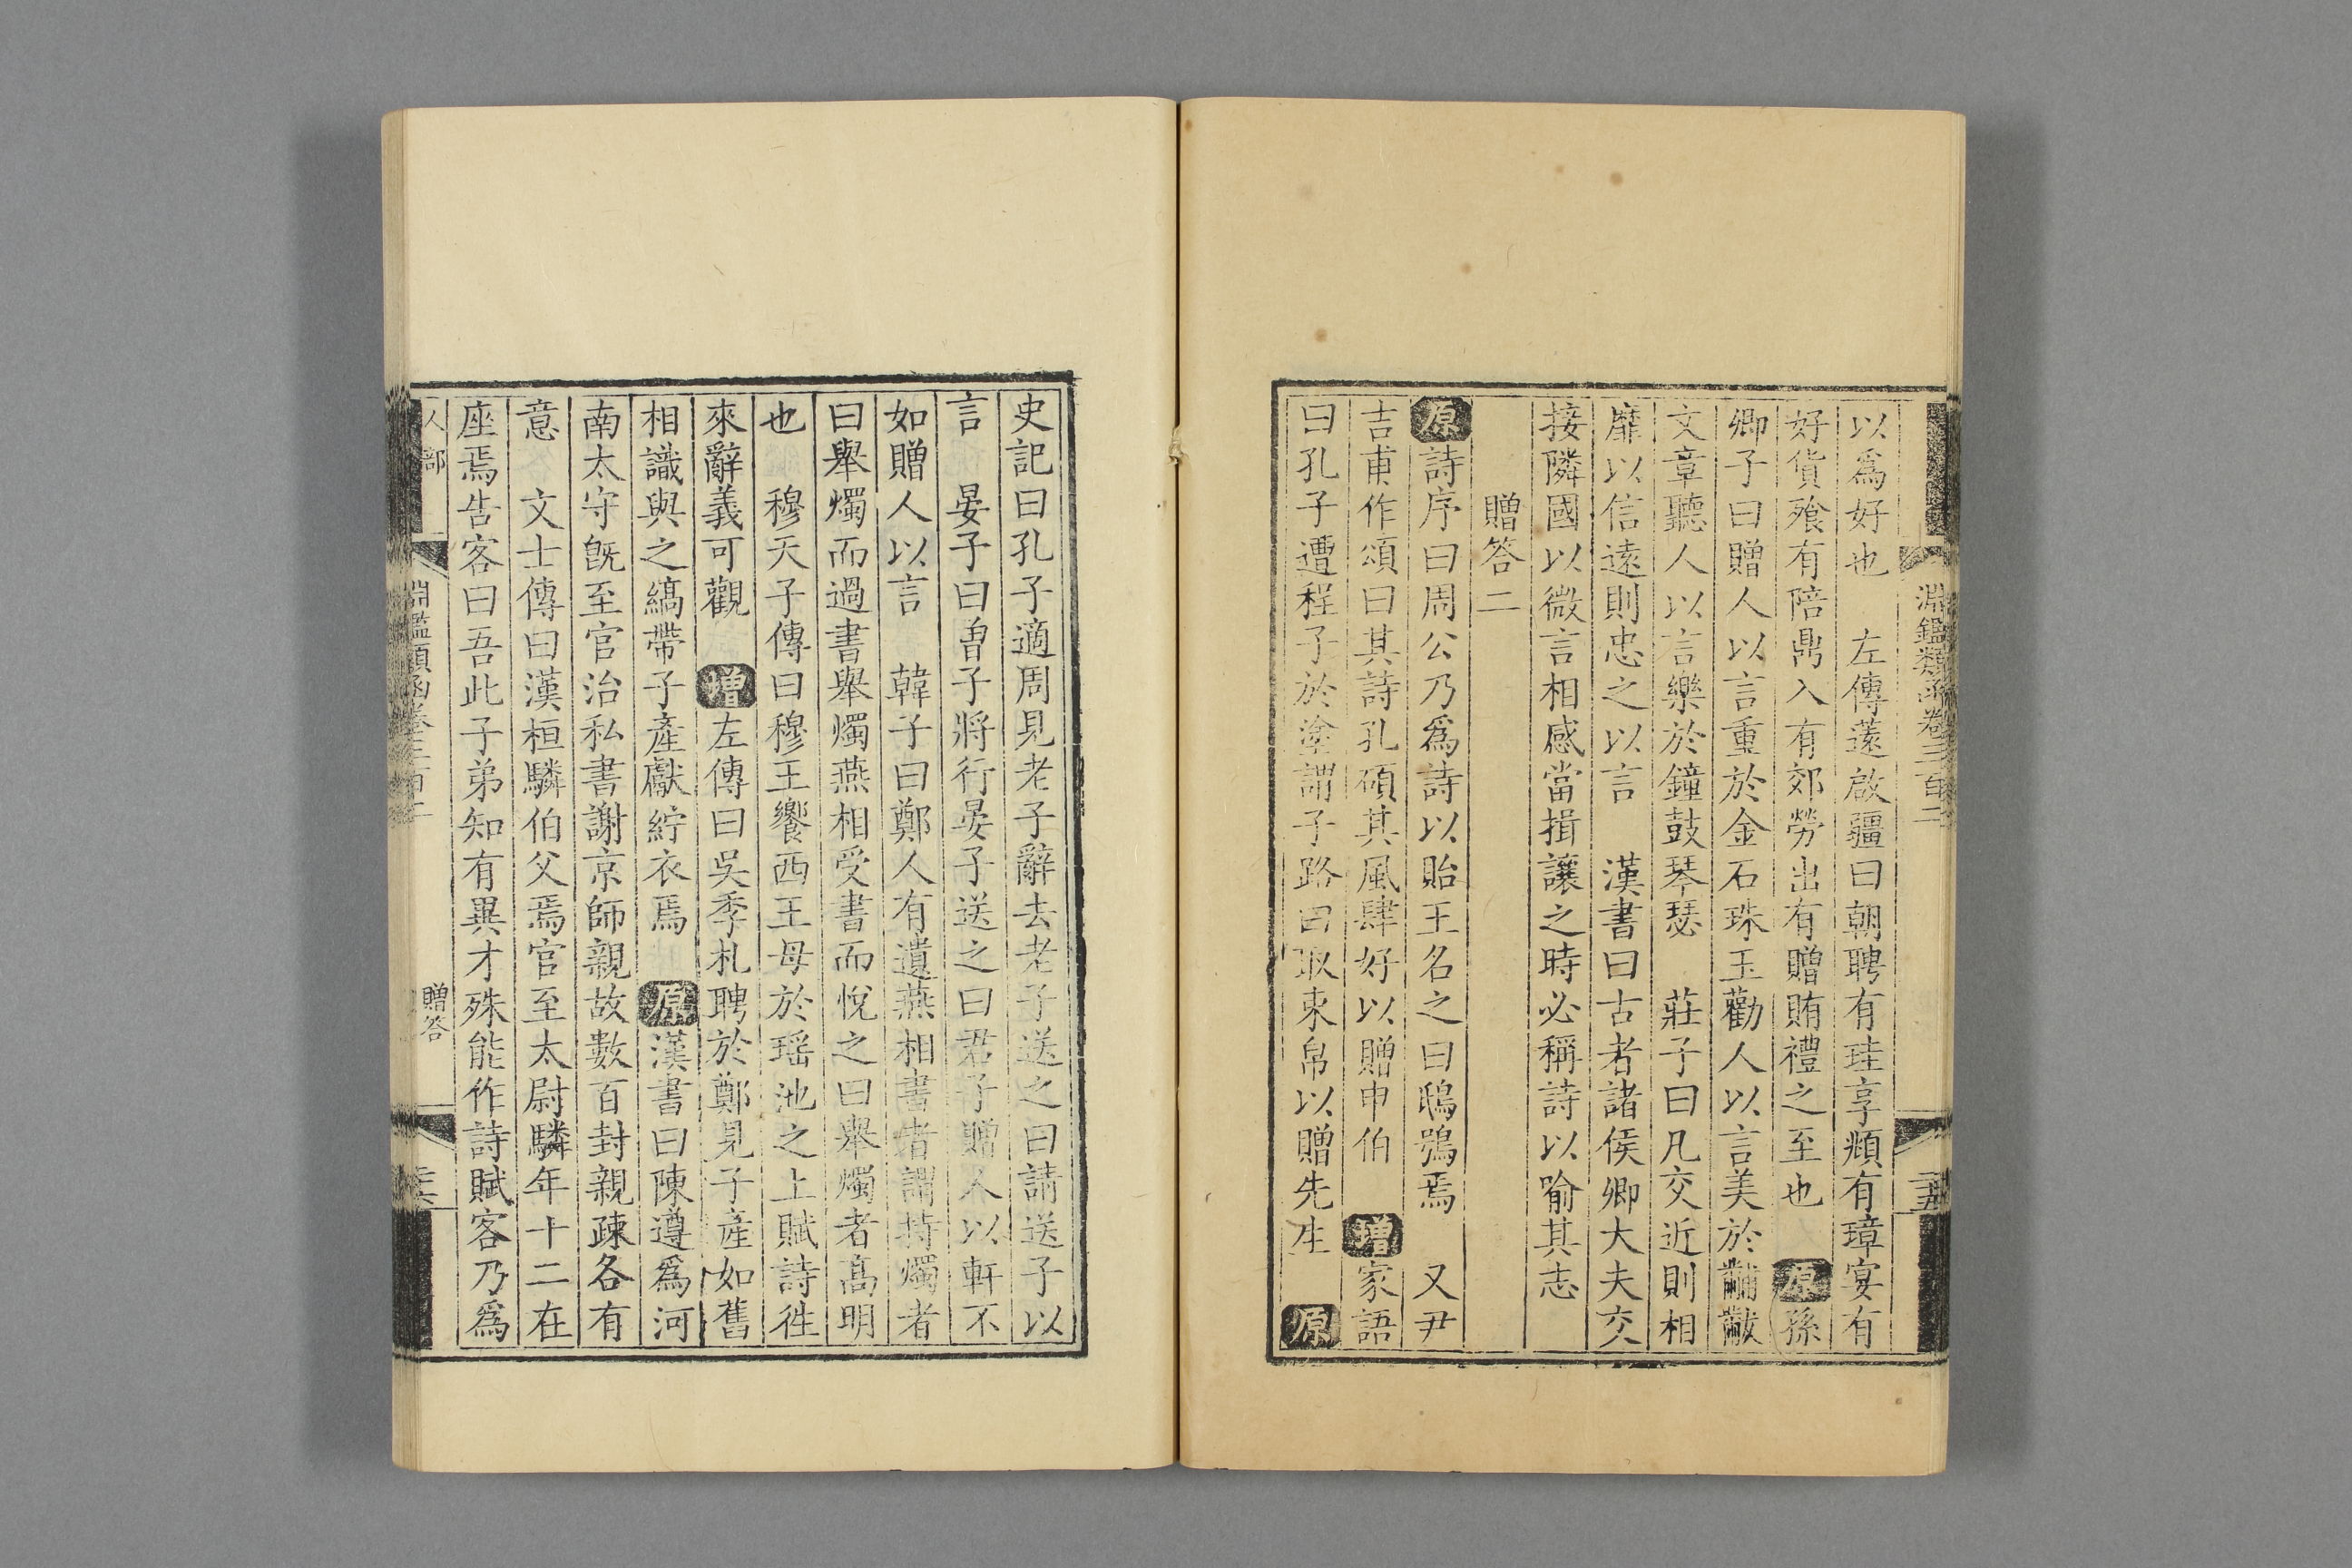 淵鑑類函卷三百二
以爲好也　左傳薳啟疆曰朝聘有珪享頫有璋宴有
好貨飱有陪鼎入有郊勞出有贈賄禮之至也　原孫
卿子曰贈人以言重於金石珠玉勸人以言美於黼黻
文章聽人以言樂於鐘鼓琴瑟　莊子曰凡交近則相
靡以信遠則忠之以言　漢書曰古者諸侯卿大夫交
接隣國以微言相感當揖讓之時必稱詩以喻其志
贈答二
原詩序曰周公乃爲詩以貽王名之曰鴟鴞焉　又尹
吉甫作頌曰其詩孔碩其風肆好以贈申伯　增家語
曰孔子遭程子於塗謂子路曰取束帛以贈先生　原
史記曰孔子適周見老子辭去老子送之曰請送子以
言　晏子曰曽子將行晏子送之曰君子贈人以軒不
如贈人以言　韓子曰鄭人有遺燕相書者謂持燭者
曰舉燭而過書舉燭燕相受書而悅之曰舉燭者高明
也　穆天子傳曰穆王饗西王母於瑶池之上賦詩徃
來辭義可觀　增左傳曰吳季札聘於鄭見子產如舊
相識與之縞帶子產獻紵衣焉　原漢書曰陳遵爲河
南太守旣至官治私書謝京師親故數百封親疎各有
意　文士傳曰漢桓驎伯父焉官至太尉驎年十二在
座焉告客曰吾此子弟知有異才殊能作詩賦客乃爲
人部
淵鑑類函卷三百二
贈答